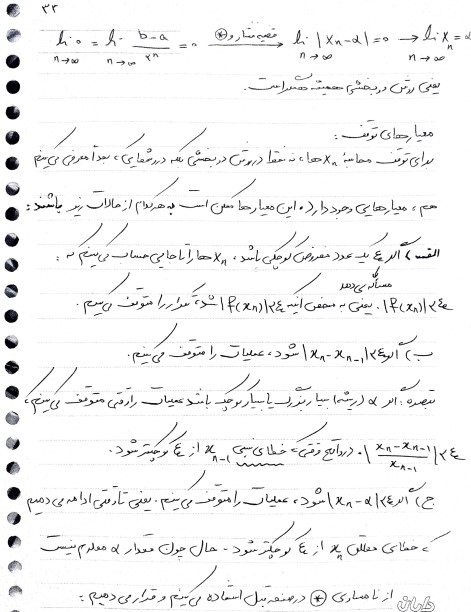 ۳۲
lim 0 = lim (b-a)/2^n = 0 → قضیه فشار و ⊛ → lim |x_n - α| = 0 → lim x_n = α
n→∞ n→∞ n→∞ n→∞
یعنی روش دوبخشی همیشه همگراست.
معیارهای توقف :
برای توقف محاسبهٔ x_n ها، نه فقط در روش دوبخشی بلکه در روشهایی که بعداً معرفی می‌کنیم
هم، معیارهایی وجود دارد. این معیارها ممکن است به هر کدام از حالات زیر باشند :
الف) اگر ε یک عدد مفروض کوچکی باشد، x_n ها را تا جایی حساب می‌کنیم که :
مسأله می‌دهد
|f(x_n)| < ε. یعنی به محض اینکه |f(x_n)| < ε شد، تکرار را متوقف می‌کنیم.
ب) اگر |x_n - x_{n-1}| < ε شود، عملیات را متوقف می‌کنیم.
تبصره : اگر α (ریشه) بسیار بزرگ یا بسیار کوچک باشد عملیات را وقتی متوقف می‌کنیم که
|(x_n - x_{n-1})/x_{n-1}| < ε. در واقع وقتی که خطای نسبی x_{n-1} از ε کوچکتر شود.
ج) اگر |x_n - α| < ε شود، عملیات را متوقف می‌کنیم. یعنی تا وقتی ادامه می‌دهیم
که خطای مطلق x_n از ε کوچکتر شود. حال چون مقدار α معلوم نیست
از نامساوی ⊛ در صفحه قبل استفاده می‌کنیم و قرار می‌دهیم :